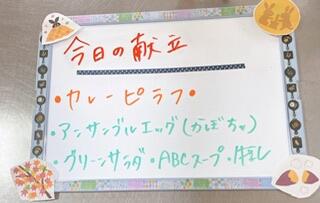 今日の献立
・カレーピラフ・
・アンサンブルエッグ(かぼちゃ)
・グリーンサラダ・ABCスープ・牛乳